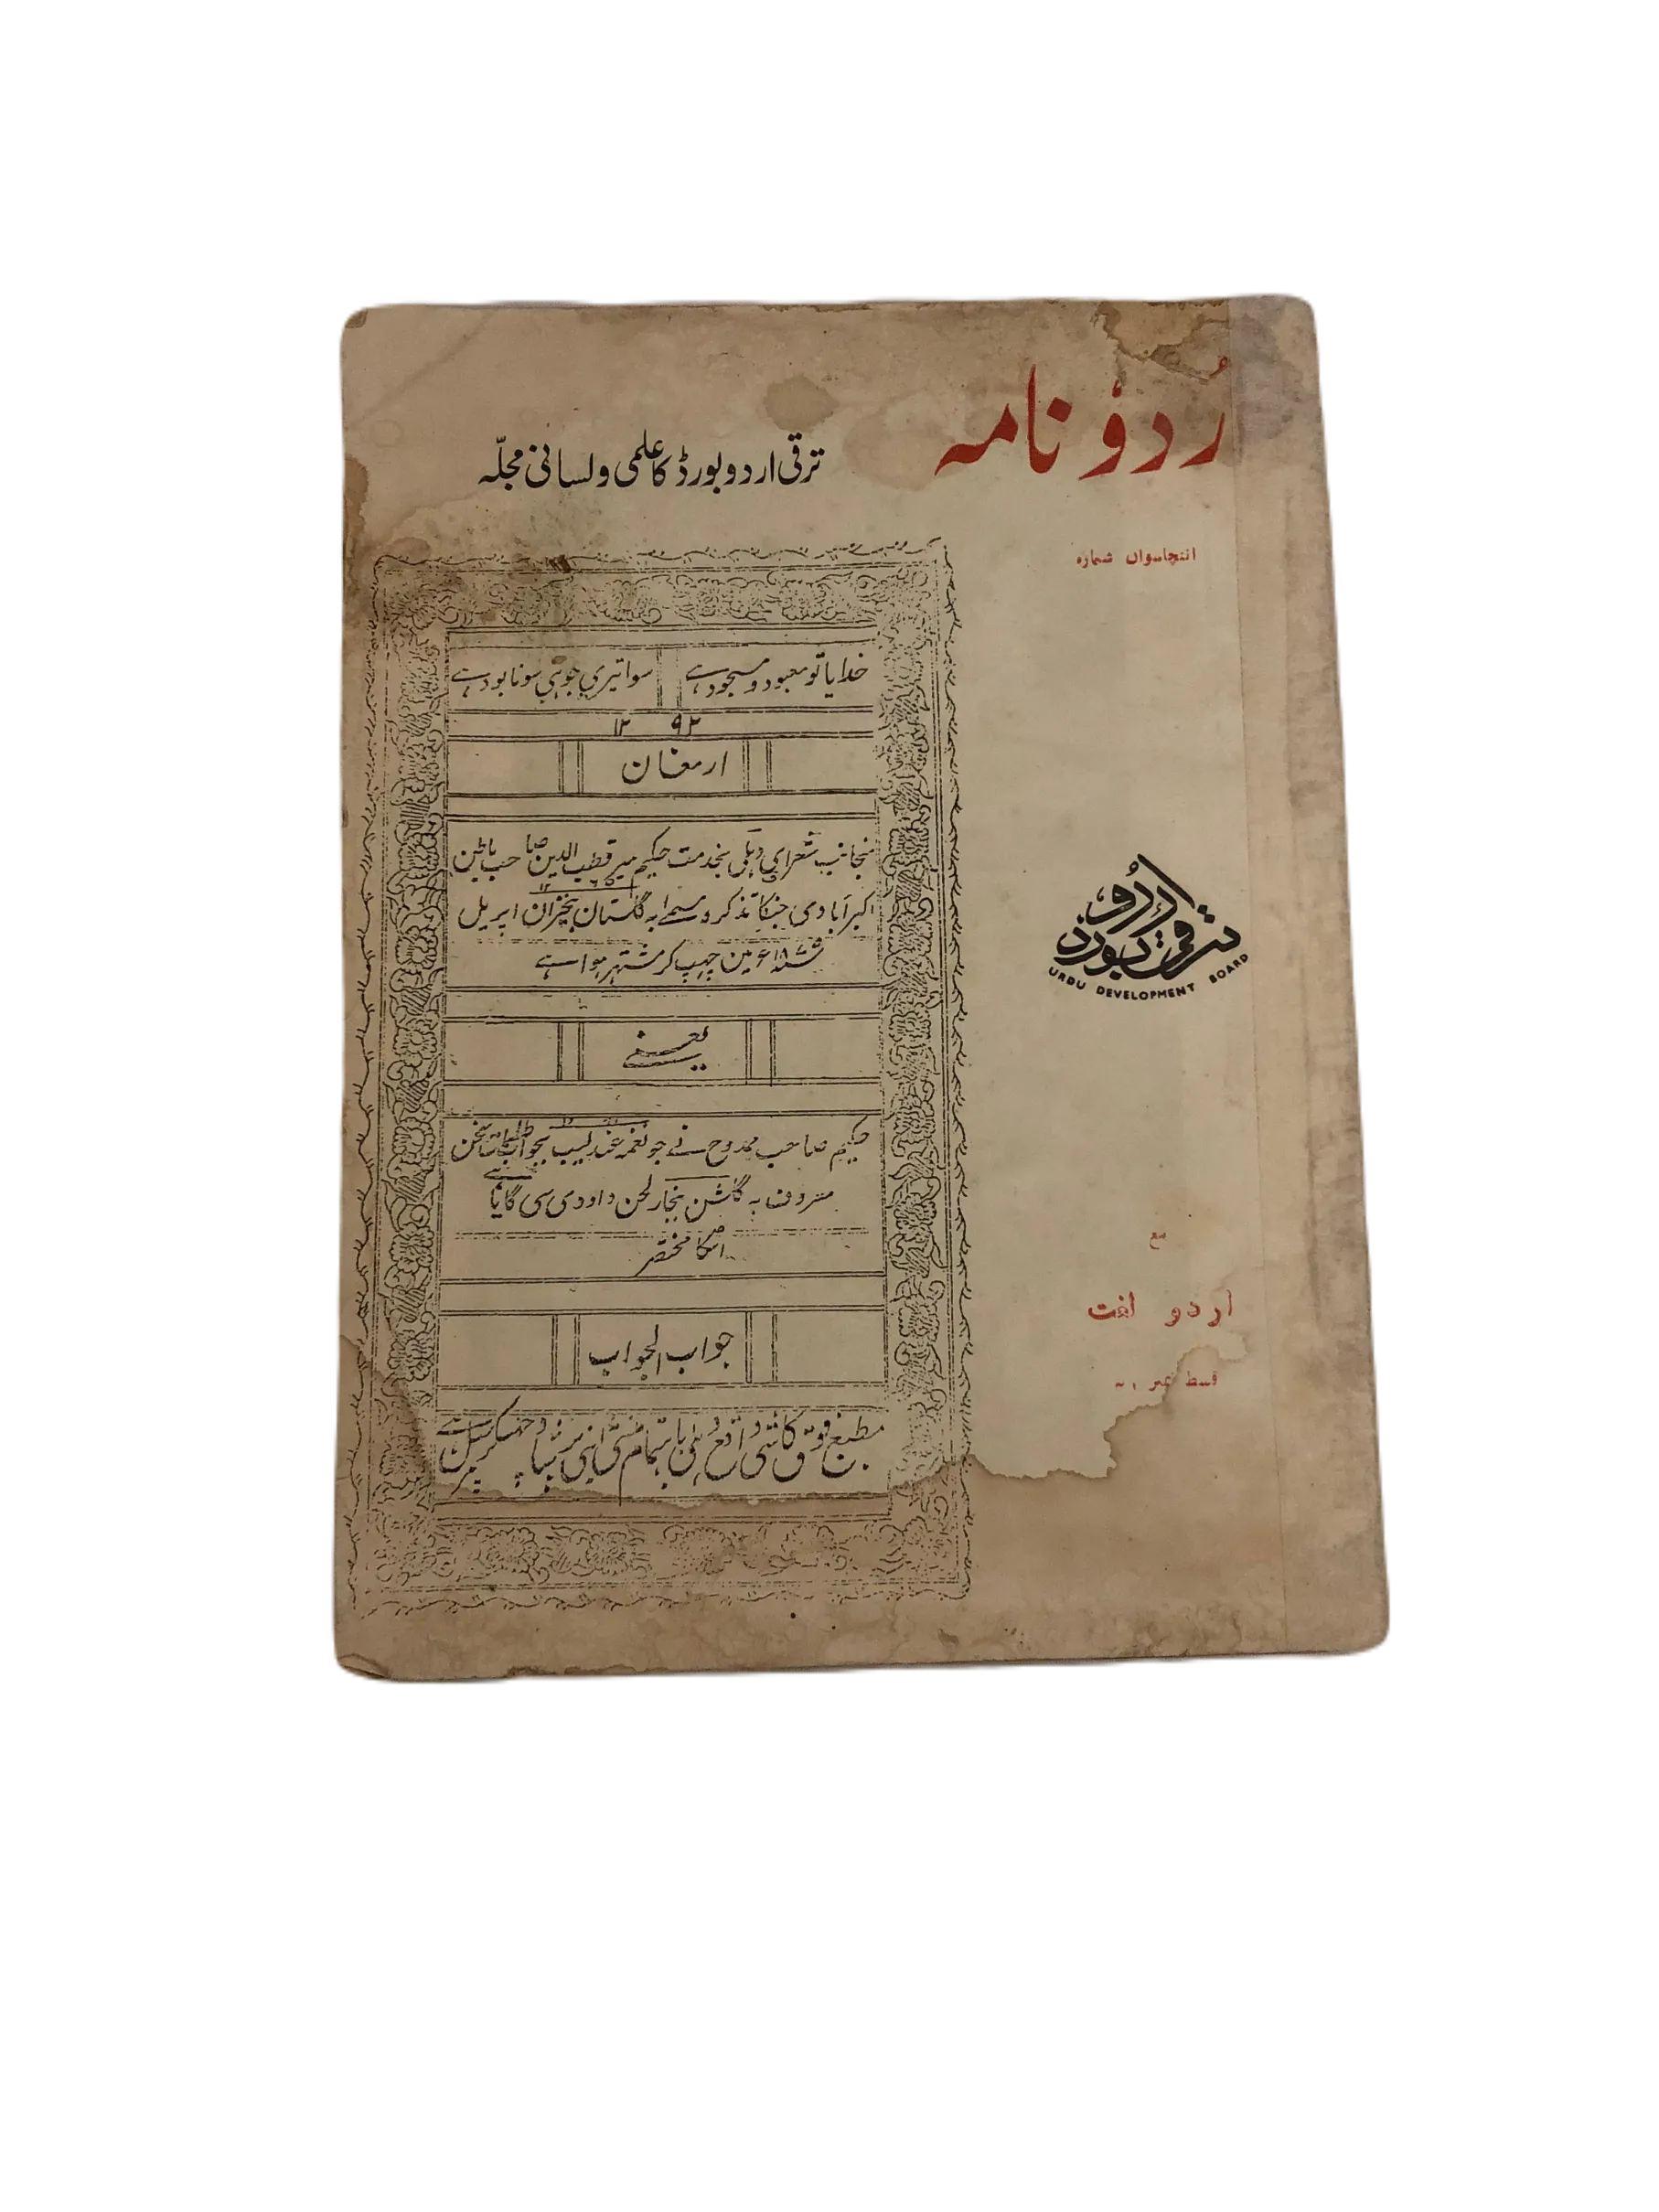 اُردو نامہ
ترقی اردو بورڈ کا علمی و لسانی مجلّہ
انتچاسواں شمارہ
خدایا تو معبود و مسجود ہے
سوا تیری جو ہی سو نابود ہے
۱۲ ۹۲
ارمغان
منجانب شعرای دہلی بخدمت حکیم میر قطب الدین صاحب باطن
اکبرآبادی جنکا تذکرہ مسمے بہ گلستان بیخزان اپریل
۱۸۷۵ء مین چھپ کر مشتہر ہوا ہے
یعنے
حکیم صاحب ممدوح نے جو نغمہ عندلیب بجواب سخن
معروف بہ گلشن بیخار لحن داودی سی گایا ہے
اسکا مختصر
جواب الجواب
مطبع فوق کاشی واقع دہلی باہتمام منشی چھپکر
ترقی اردو بورڈ
URDU DEVELOPMENT BOARD
مع
اردو لغت
قسط نمبر